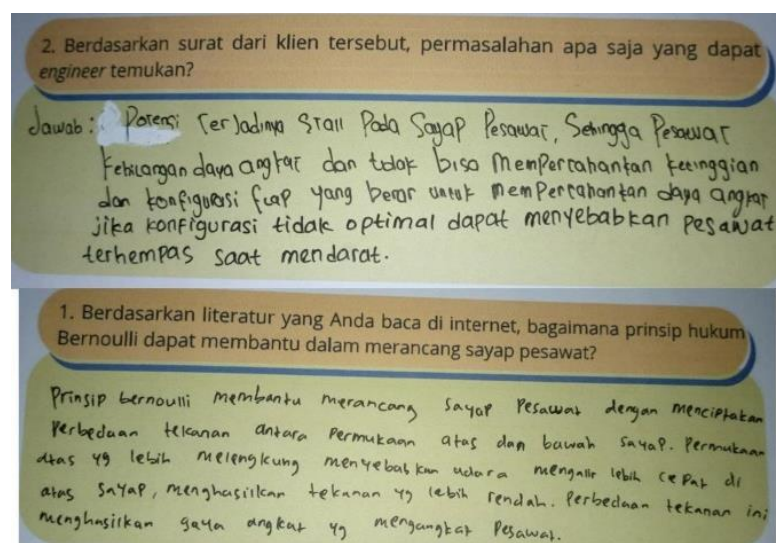 2. Berdasarkan surat dari klien tersebut, permasalahan apa saja yang dapat
engineer temukan?
Jawab : Potensi terjadinya stall Pada Sayap Pesawat, Sehingga Pesawat
kehilangan daya angkat dan tidak bisa mempertahankan ketinggian
dan konfigurasi flap yang benar untuk mempertahankan daya angkat
jika konfigurasi tidak optimal dapat menyebabkan pesawat
terhempas saat mendarat.
1. Berdasarkan literatur yang Anda baca di internet, bagaimana prinsip hukum
Bernoulli dapat membantu dalam merancang sayap pesawat?
Prinsip bernoulli membantu merancang sayap Pesawat dengan menciptakan
Perbedaan tekanan antara Permukaan atas dan bawah sayap. Permukaan
atas yg lebih melengkung menyebabkan udara mengalir lebih cepat di
atas sayap, menghasilkan tekanan yg lebih rendah. Perbedaan tekanan ini
menghasilkan gaya angkat yg mengangkat Pesawat.